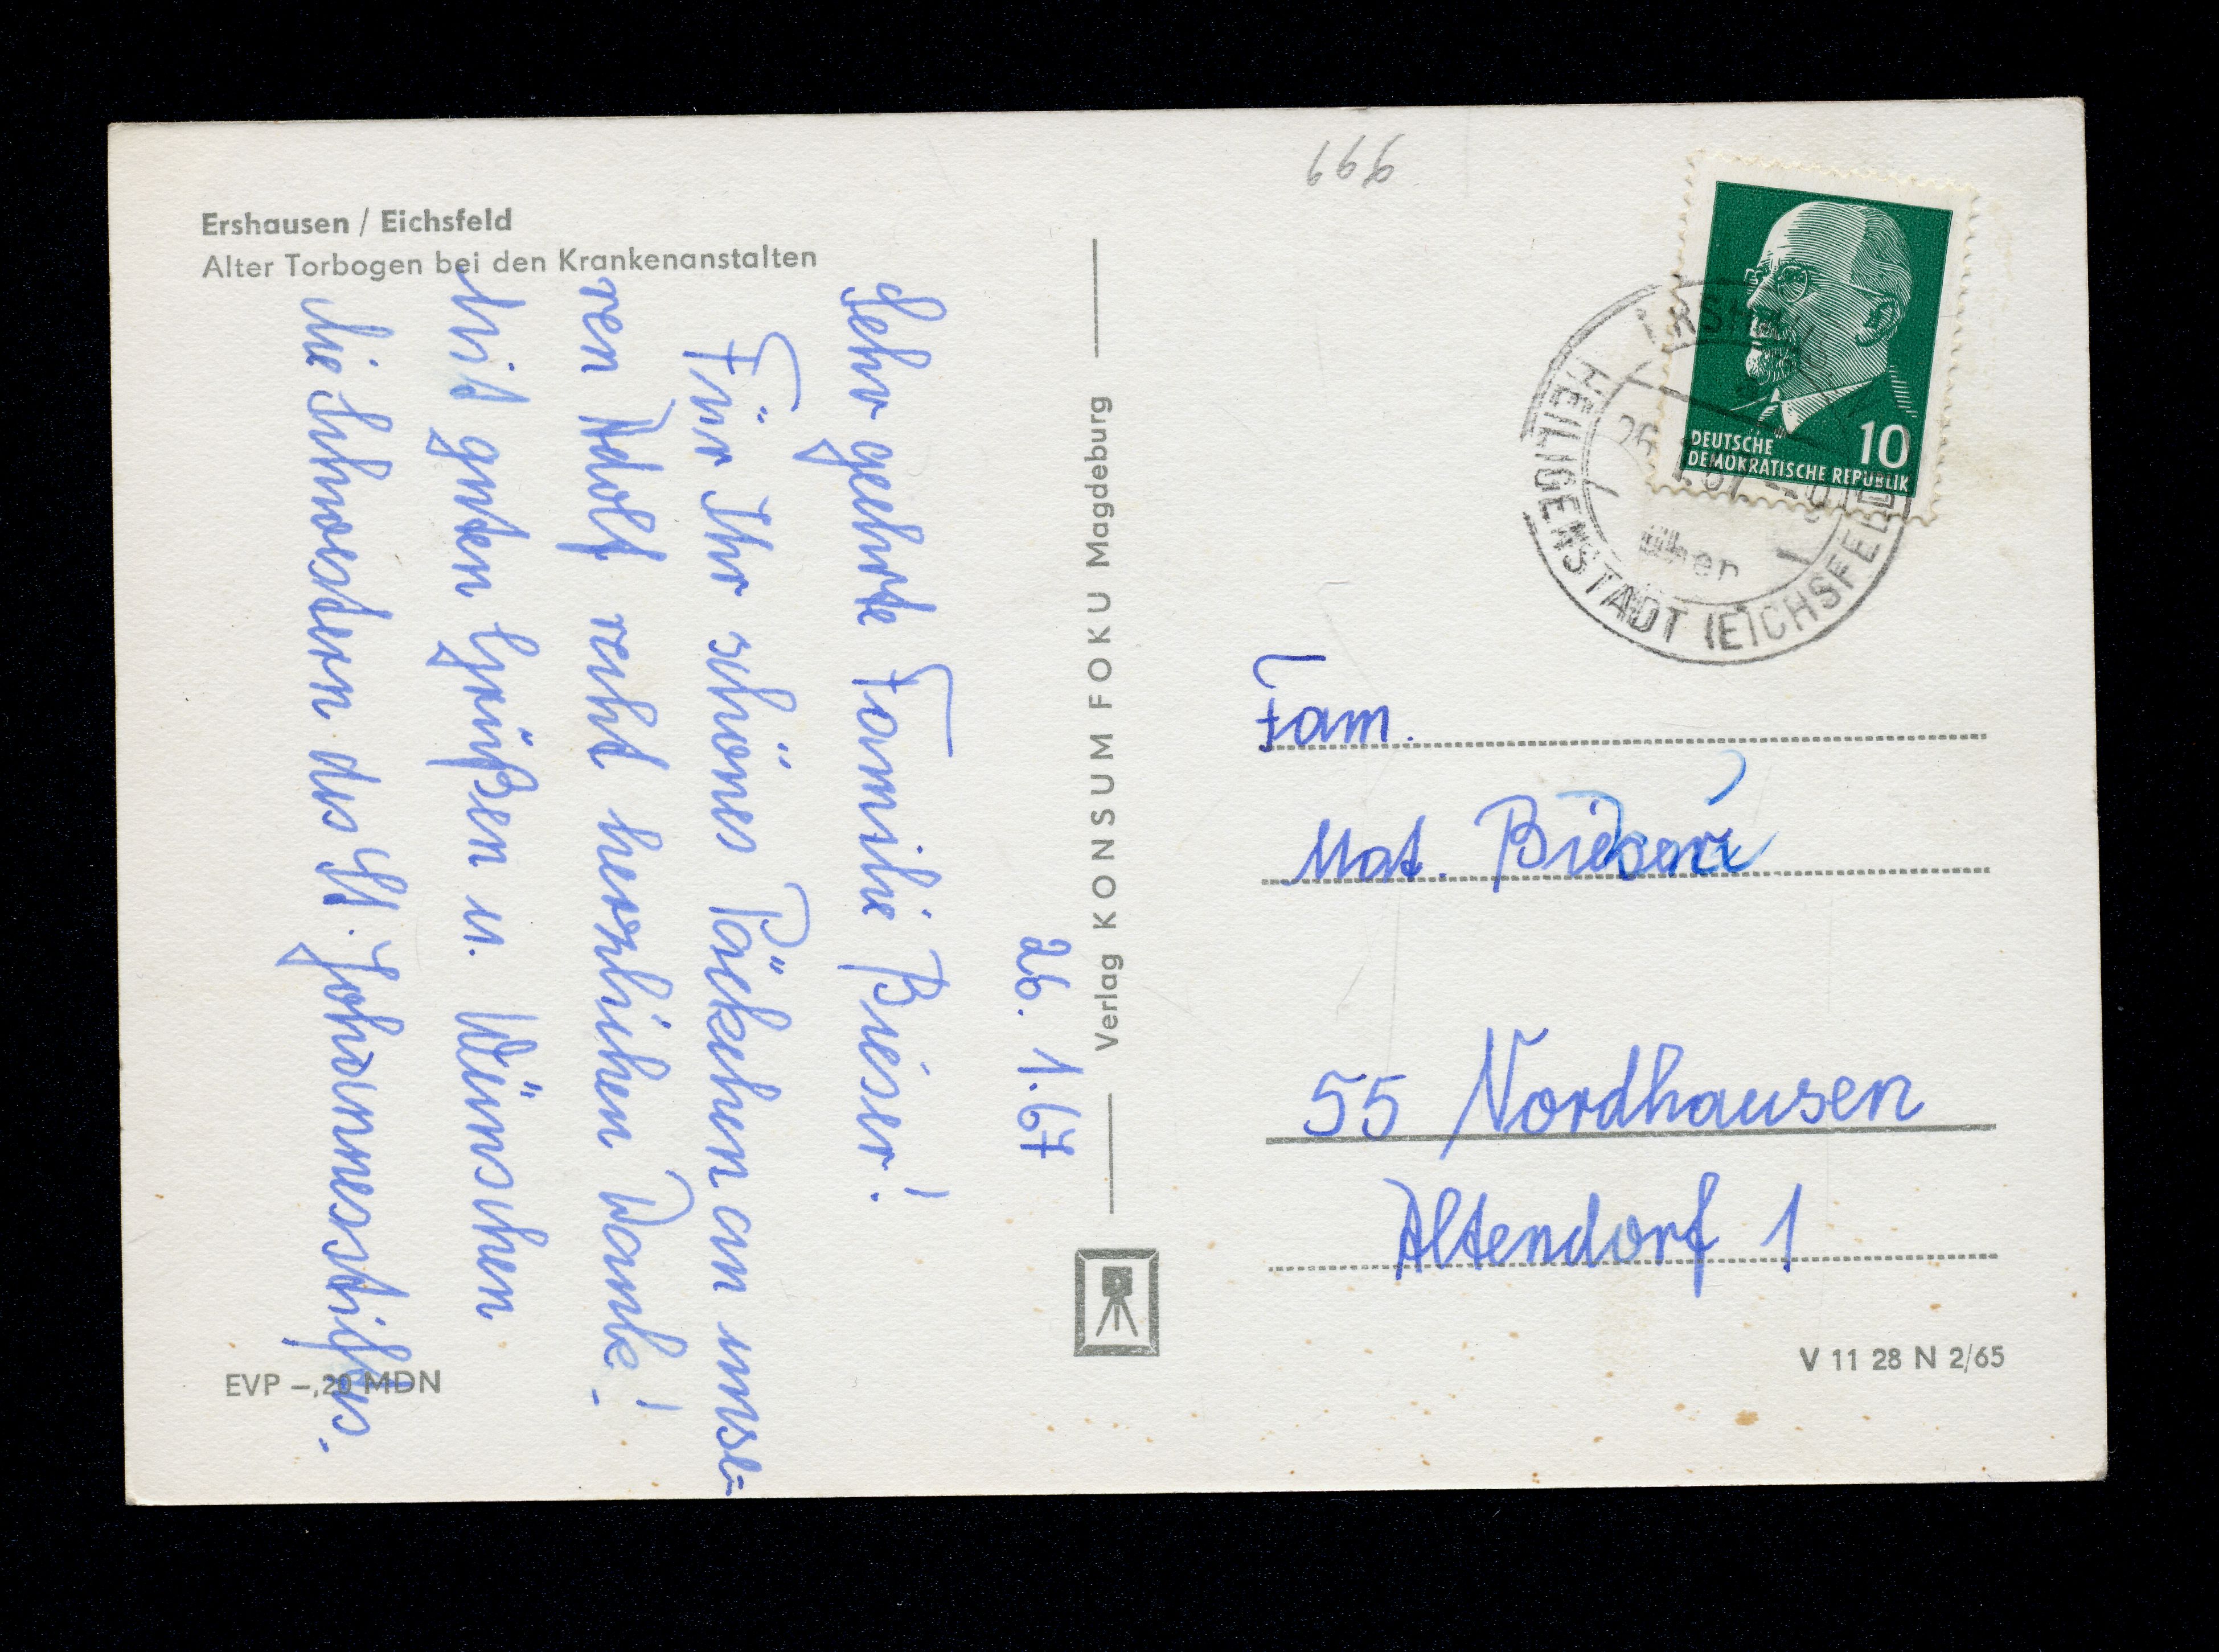 Ershausen / Eichsfeld
Alter Torbogen bei den Krankenanstalten
26. 1. 67
Sehr geehrte Familie Bieser!
Für Ihr schönes Päckchen an unse=
ren Adolf recht herzlichen Dank!
Mit guten Grüßen u. Wünschen
die Schwestern des St. Johannesstiftes.
EVP –,20 MDN
Verlag KONSUM FOKU Magdeburg
DEUTSCHE
DEMOKRATISCHE REPUBLIK
10
ERSHAUSEN
über
HEILIGENSTADT (EICHSFELD)
Fam.
Mat.
55 Nordhausen
Altendorf 1
V 11 28 N 2/65